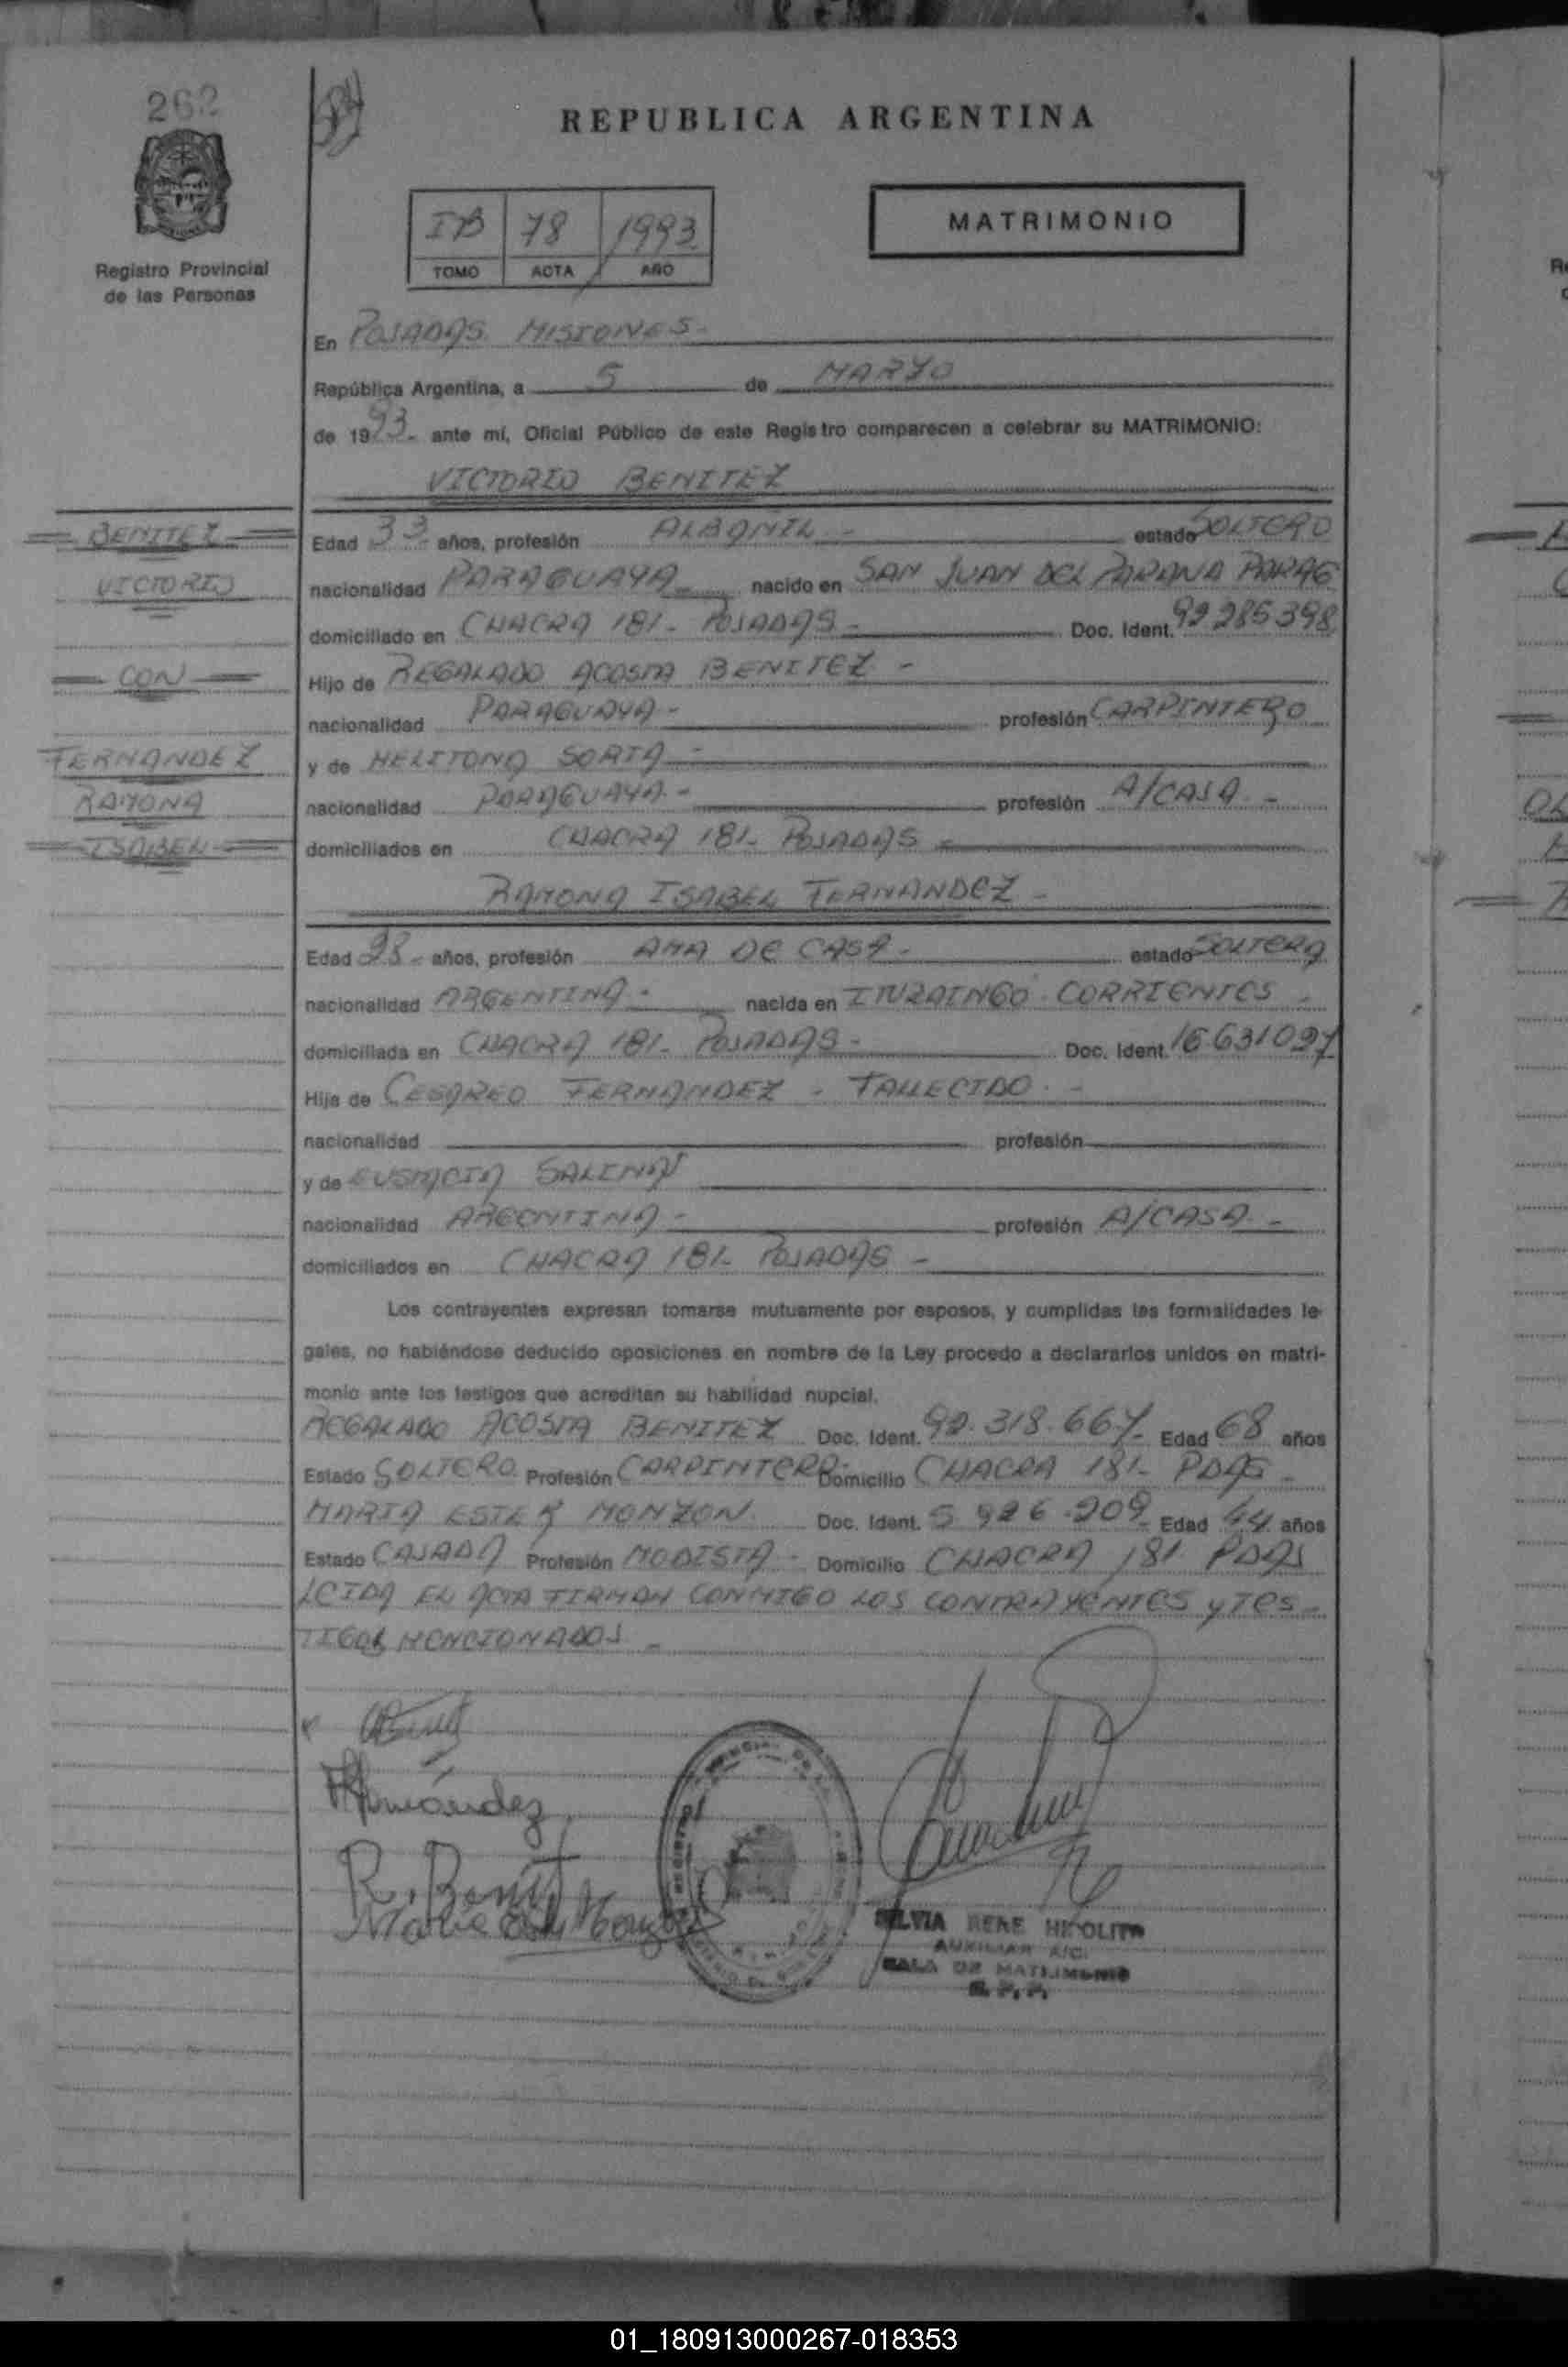 262
REPUBLICA ARGENTINA
MATRIMONIO
IB 78 1993
TOMO ACTA AÑO
Registro Provincial
de las Personas
En POSADAS. MISIONES-
República Argentina, a 5 de MARZO
de 1993- ante mí, Oficial Público de este Registro comparecen a celebrar su MATRIMONIO:
VICTORIO BENITEZ
BENITEZ
VICTORIO
CON
FERNANDEZ
RAMONA
ISABEL
Edad 33 años, profesión ALBAÑIL - estado SOLTERO
nacionalidad PARAGUAYA nacido en SAN JUAN DEL PARANA PARAG
domiciliado en CHACRA 181- POSADAS - Doc. Ident. 92285398
Hijo de REGALADO ACOSTA BENITEZ -
nacionalidad PARAGUAYA - profesión CARPINTERO
y de MELITONA SORIA -
nacionalidad PARAGUAYA - profesión A/CASA -
domiciliados en CHACRA 181- POSADAS -
RAMONA ISABEL FERNANDEZ -
Edad 28- años, profesión AMA DE CASA - estado SOLTERA
nacionalidad ARGENTINA - nacida en ITUZAINGO - CORRIENTES
domiciliada en CHACRA 181- POSADAS - Doc. Ident. 16.631.097
Hija de CESAREO FERNANDEZ - FALLECIDO - -
nacionalidad profesión
y de EUSTACIA SALINAS
nacionalidad ARGENTINA - profesión A/CASA -
domiciliados en CHACRA 181- POSADAS -
Los contrayentes expresan tomarse mutuamente por esposos, y cumplidas las formalidades le-
gales, no habiéndose deducido oposiciones en nombre de la Ley procedo a declararlos unidos en matri-
monio ante los testigos que acreditan su habilidad nupcial.
REGALADO ACOSTA BENITEZ Doc. Ident. 92.318.667- Edad 68 años
Estado SOLTERO. Profesión CARPINTERO- Domicilio CHACRA 181- PDAS -
MARIA ESTER MONZON Doc. Ident. 5 926.209- Edad 44 años
Estado CASADA Profesión MODISTA - Domicilio CHACRA 181 PDAS
LEIDA EL ACTA FIRMAN CONMIGO LOS CONTRAYENTES y TES-
TIGOS MENCIONADOS -
Fernández
R. Benit
Maria Ester Monzon
SILVIA RENE HIPOLITO
AUXILIAR A/C.
SALA DE MATRIMONIO
R. P. P.
01_180913000267-018353